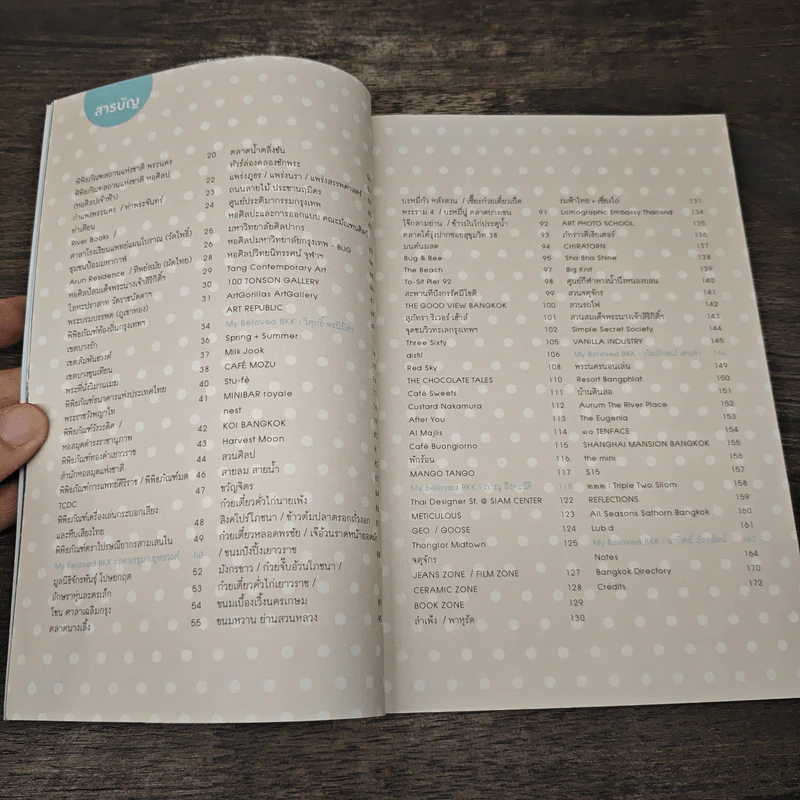 สารบัญ
พิพิธภัณฑสถานแห่งชาติ พระนคร 20
พิพิธภัณฑสถานแห่งชาติ หอศิลป 22
(หอศิลปเจ้าฟ้า) 23
กำแพงพระนคร / ท่าพระจันทร์ 24
ท่าเตียน
River Books / 25
ศาลาโรงเรียนแพทย์แผนโบราณ (วัดโพธิ์) 26
ชุมชนป้อมมหากาฬ 28
Arun Residence / ทิพย์สมัย (ผัดไทย) 29
หอศิลป์สมเด็จพระนางเจ้าสิริกิติ์ฯ 30
โลหะปราสาท วัดราชนัดดาฯ 31
พระบรมบรรพต (ภูเขาทอง)
พิพิธภัณฑ์ท้องถิ่นกรุงเทพฯ 34
เขตบางรัก 36
เขตสัมพันธวงศ์ 37
เขตบางขุนเทียน 38
พระที่นั่งวิมานเมฆ 40
พิพิธภัณฑ์ธนาคารแห่งประเทศไทย 41
พระราชวังพญาไท
พิพิธภัณฑ์วังวรดิศ / 42
หอสมุดดำรงราชานุภาพ 43
พิพิธภัณฑ์ทองคำเยาวราช 44
สำนักหอสมุดแห่งชาติ 46
พิพิธภัณฑ์การแพทย์ศิริราช / พิพิธภัณฑ์มด 47
TCDC
พิพิธภัณฑ์เครื่องเล่นกระบอกเสียง
และหีบเสียงไทย 48
พิพิธภัณฑ์ตราไปรษณียากรสามเสนใน 49
My Beloved BKK 50
มูลนิธิจักรพันธุ์ โปษยกฤต 52
อักษราหุ่นละครเล็ก 53
โขน ศาลาเฉลิมกรุง 54
ตลาดนางเลิ้ง 55
ตลาดน้ำตลิ่งชัน
ทัวร์ล่องคลองชักพระ
แพร่งภูธร / แพร่งนรา / แพร่งสรรพศาสตร์
ถนนสายไม้ ประชานฤมิตร
ศูนย์ประติมากรรมกรุงเทพ
หอศิลปะและการออกแบบ คณะมัณฑนศิลป์
มหาวิทยาลัยศิลปากร
หอศิลปมหาวิทยาลัยกรุงเทพ - BUG
หอศิลปวิทยนิทรรศน์ จุฬาฯ
Tang Contemporary Art
100 TONSON GALLERY
ArtGorillas ArtGallery
ART REPUBLIC
My Beloved BKK : วิศุทธิ์ พรนิมิตร
Spring + Summer
Milk Jook
CAFÉ MOZU
Stu-fé
MINIBAR royale
nest
KOI BANGKOK
Harvest Moon
สวนศิลป์
สายลม สายน้ำ
ขวัญจิตร
ก๋วยเตี๋ยวคั่วไก่นายเฟ้ง
สิงคโปร์โภชนา / ข้าวต้มปลาตรอกถั่วงอก
ก๋วยเตี๋ยวหลอดพรชัย / เจ๊อ้วนราดหน้ายอดผัก
/ ขนมปังปิ้งเยาวราช
มังกรขาว / ก๋วยจั๊บอ้วนโภชนา /
ก๋วยเตี๋ยวคั่วไก่เยาวราช /
ขนมเบื้องเวิ้งนครเกษม
ขนมหวาน ย่านสวนหลวง
บะหมี่กัว หลังสวน / เซี้ยะก๋วยเตี๋ยวเป็ด
พระราม 4 / บะหมี่ปู ตลาดบางเขน 91
โจ๊กสามย่าน / ข้าวมันไก่ประตูน้ำ 92
ตลาดโต้รุ่งปากซอยสุขุมวิท 38 93
มนต์นมสด 94
Bug & Bee 95
The Beach 97
To-Sit Pier 92 98
สะพานที่นั่งกรัดมีโชติ 99
THE GOOD VIEW BANGKOK 100
สุภัทรา ริเวอร์ เฮ้าส์ 101
จุดชมวิวทะเลกรุงเทพฯ 102
Three Sixty 105
distil 106
Red Sky 108
THE CHOCOLATE TALES 110
Café Sweets 111
Custard Nakamura 112
After You 113
Al Majlis 114
Café Buongiorno 115
พักร้อน 116
MANGO TANGO 117
My Beloved BKK : ภาณุ อิงคะวัติ 118
Thai Designer St. @ SIAM CENTER 122
METICULOUS 123
GEO / GOOSE 124
Thonglor Midtown 125
จตุจักร
JEANS ZONE / FILM ZONE 127
CERAMIC ZONE 128
BOOK ZONE 129
สำเพ็ง / พาหุรัด 130
ร่มฟ้าไทย + เซี่ยงไถ่ 131
Lomographic Embassy Thailand 134
ART PHOTO SCHOOL 135
ภัทราวดีเธียเตอร์ 136
CHIRATORN 137
Sha Bha Shine 138
Big Knit 139
ศูนย์กีฬาทางน้ำบึงหนองบอน 140
สวนจตุจักร 141
สวนรถไฟ 142
สวนสมเด็จพระนางเจ้าสิริกิติ์ฯ 143
Simple Secret Society 144
VANILLA INDUSTRY 145
My Beloved BKK : 146
พระนครนอนเล่น 149
Resort Bangphlat 150
บ้านดินสอ 151
Aurum The River Place 152
The Eugenia 153
๑๐ TENFACE 154
SHANGHAI MANSION BANGKOK 155
the mini 156
S15 157
๒๒๒ : Triple Two Silom 158
REFLECTIONS 159
All Seasons Sathorn Bangkok 160
Lub d 161
My Beloved BKK : 162
Notes 164
Bangkok Directory 170
Credits 172